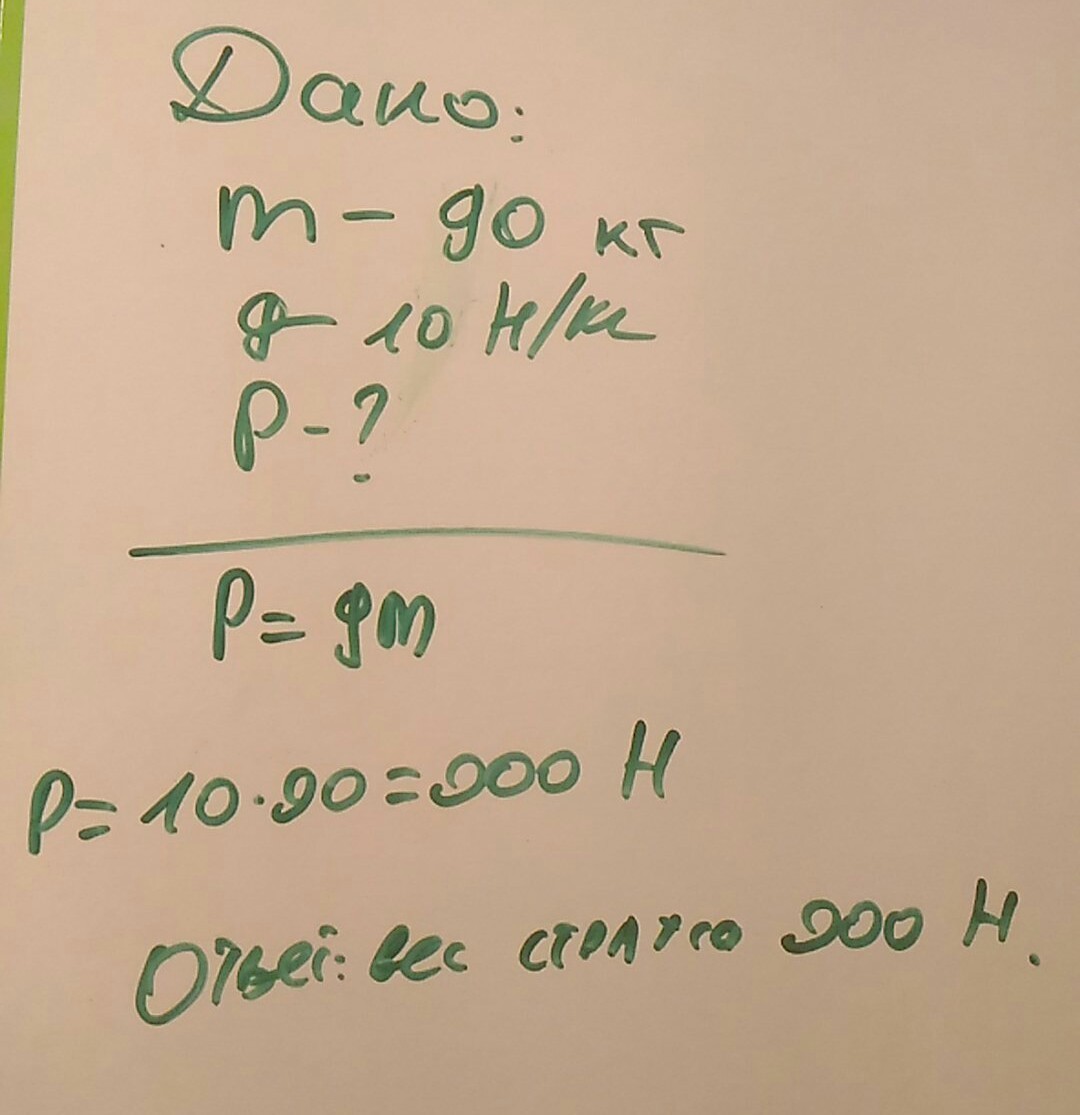 Дано:
m - 90 кг
g - 10 Н/кг
P - ?
P = gm
P = 10 · 90 = 900 Н
Ответ: вес 900 Н.